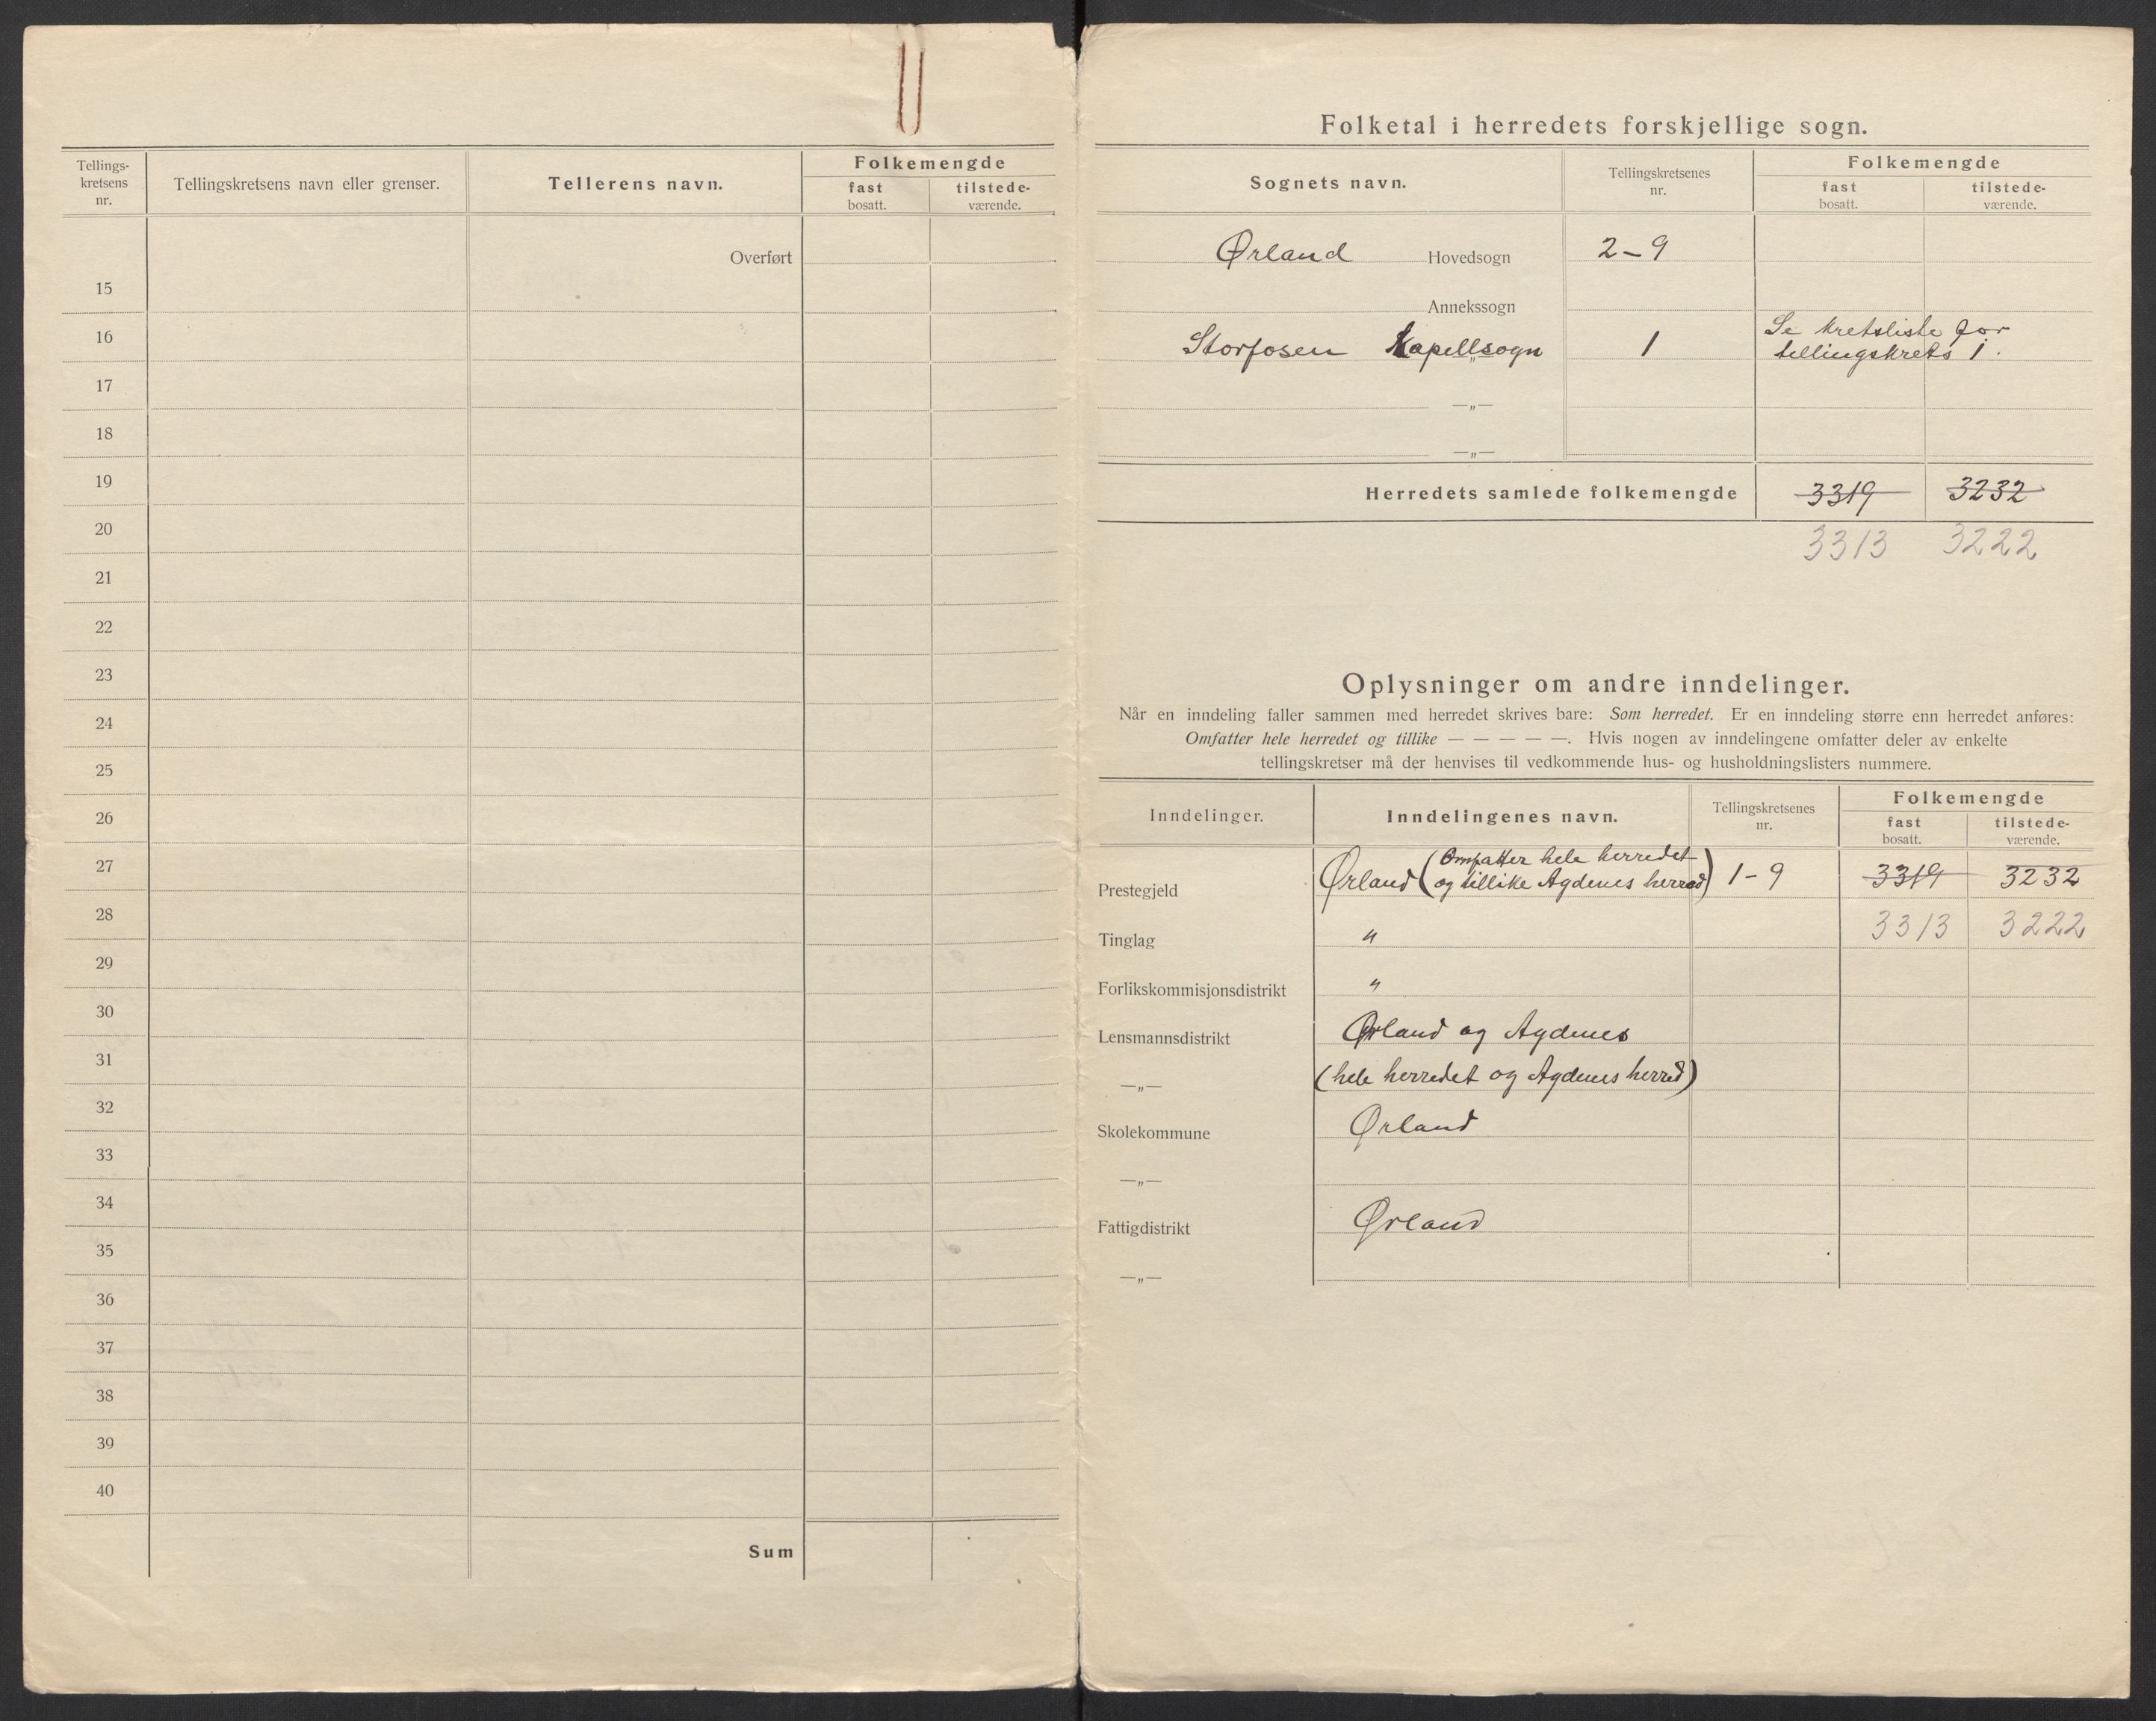 Tellings-
kretsens
nr.
Tellingskretsens navn eller grenser.
Tellerens navn.
Folkemengde
fast
bosatt.
tilstede-
værende.
Overført
15
16
17
18
19
20
21
22
23
24
25
26
27
28
29
30
31
32
33
34
35
36
37
38
39
40
Sum
Folketal i herredets forskjellige sogn.
Sognets navn.
Tellingskretsenes
nr.
Folkemengde
fast
bosatt.
tilstede-
værende.
Ørland Hovedsogn 2-9
Annekssogn
Storfosen Kapellsogn 1 Se kretsliste for
tellingskrets 1.
—„—
—„—
Herredets samlede folkemengde 3319 3232
3313 3222
Oplysninger om andre inndelinger.
Når en inndeling faller sammen med herredet skrives bare: Som herredet. Er en inndeling større enn herredet anføres:
Omfatter hele herredet og tillike — — — — —. Hvis nogen av inndelingene omfatter deler av enkelte
tellingskretser må der henvises til vedkommende hus- og husholdningslisters nummere.
Inndelinger.
Inndelingenes navn.
Tellingskretsenes
nr.
Folkemengde
fast
bosatt.
tilstede-
værende.
Prestegjeld Ørland (Omfatter hele herredet
og tillike Agdenes herred) 1-9 3319 3232
Tinglag „ 3313 3222
Forlikskommisjonsdistrikt „
Lensmannsdistrikt Ørland og Agdenes
—„— (hele herredet og Agdenes herred)
Skolekommune Ørland
—„—
Fattigdistrikt Ørland
—„—